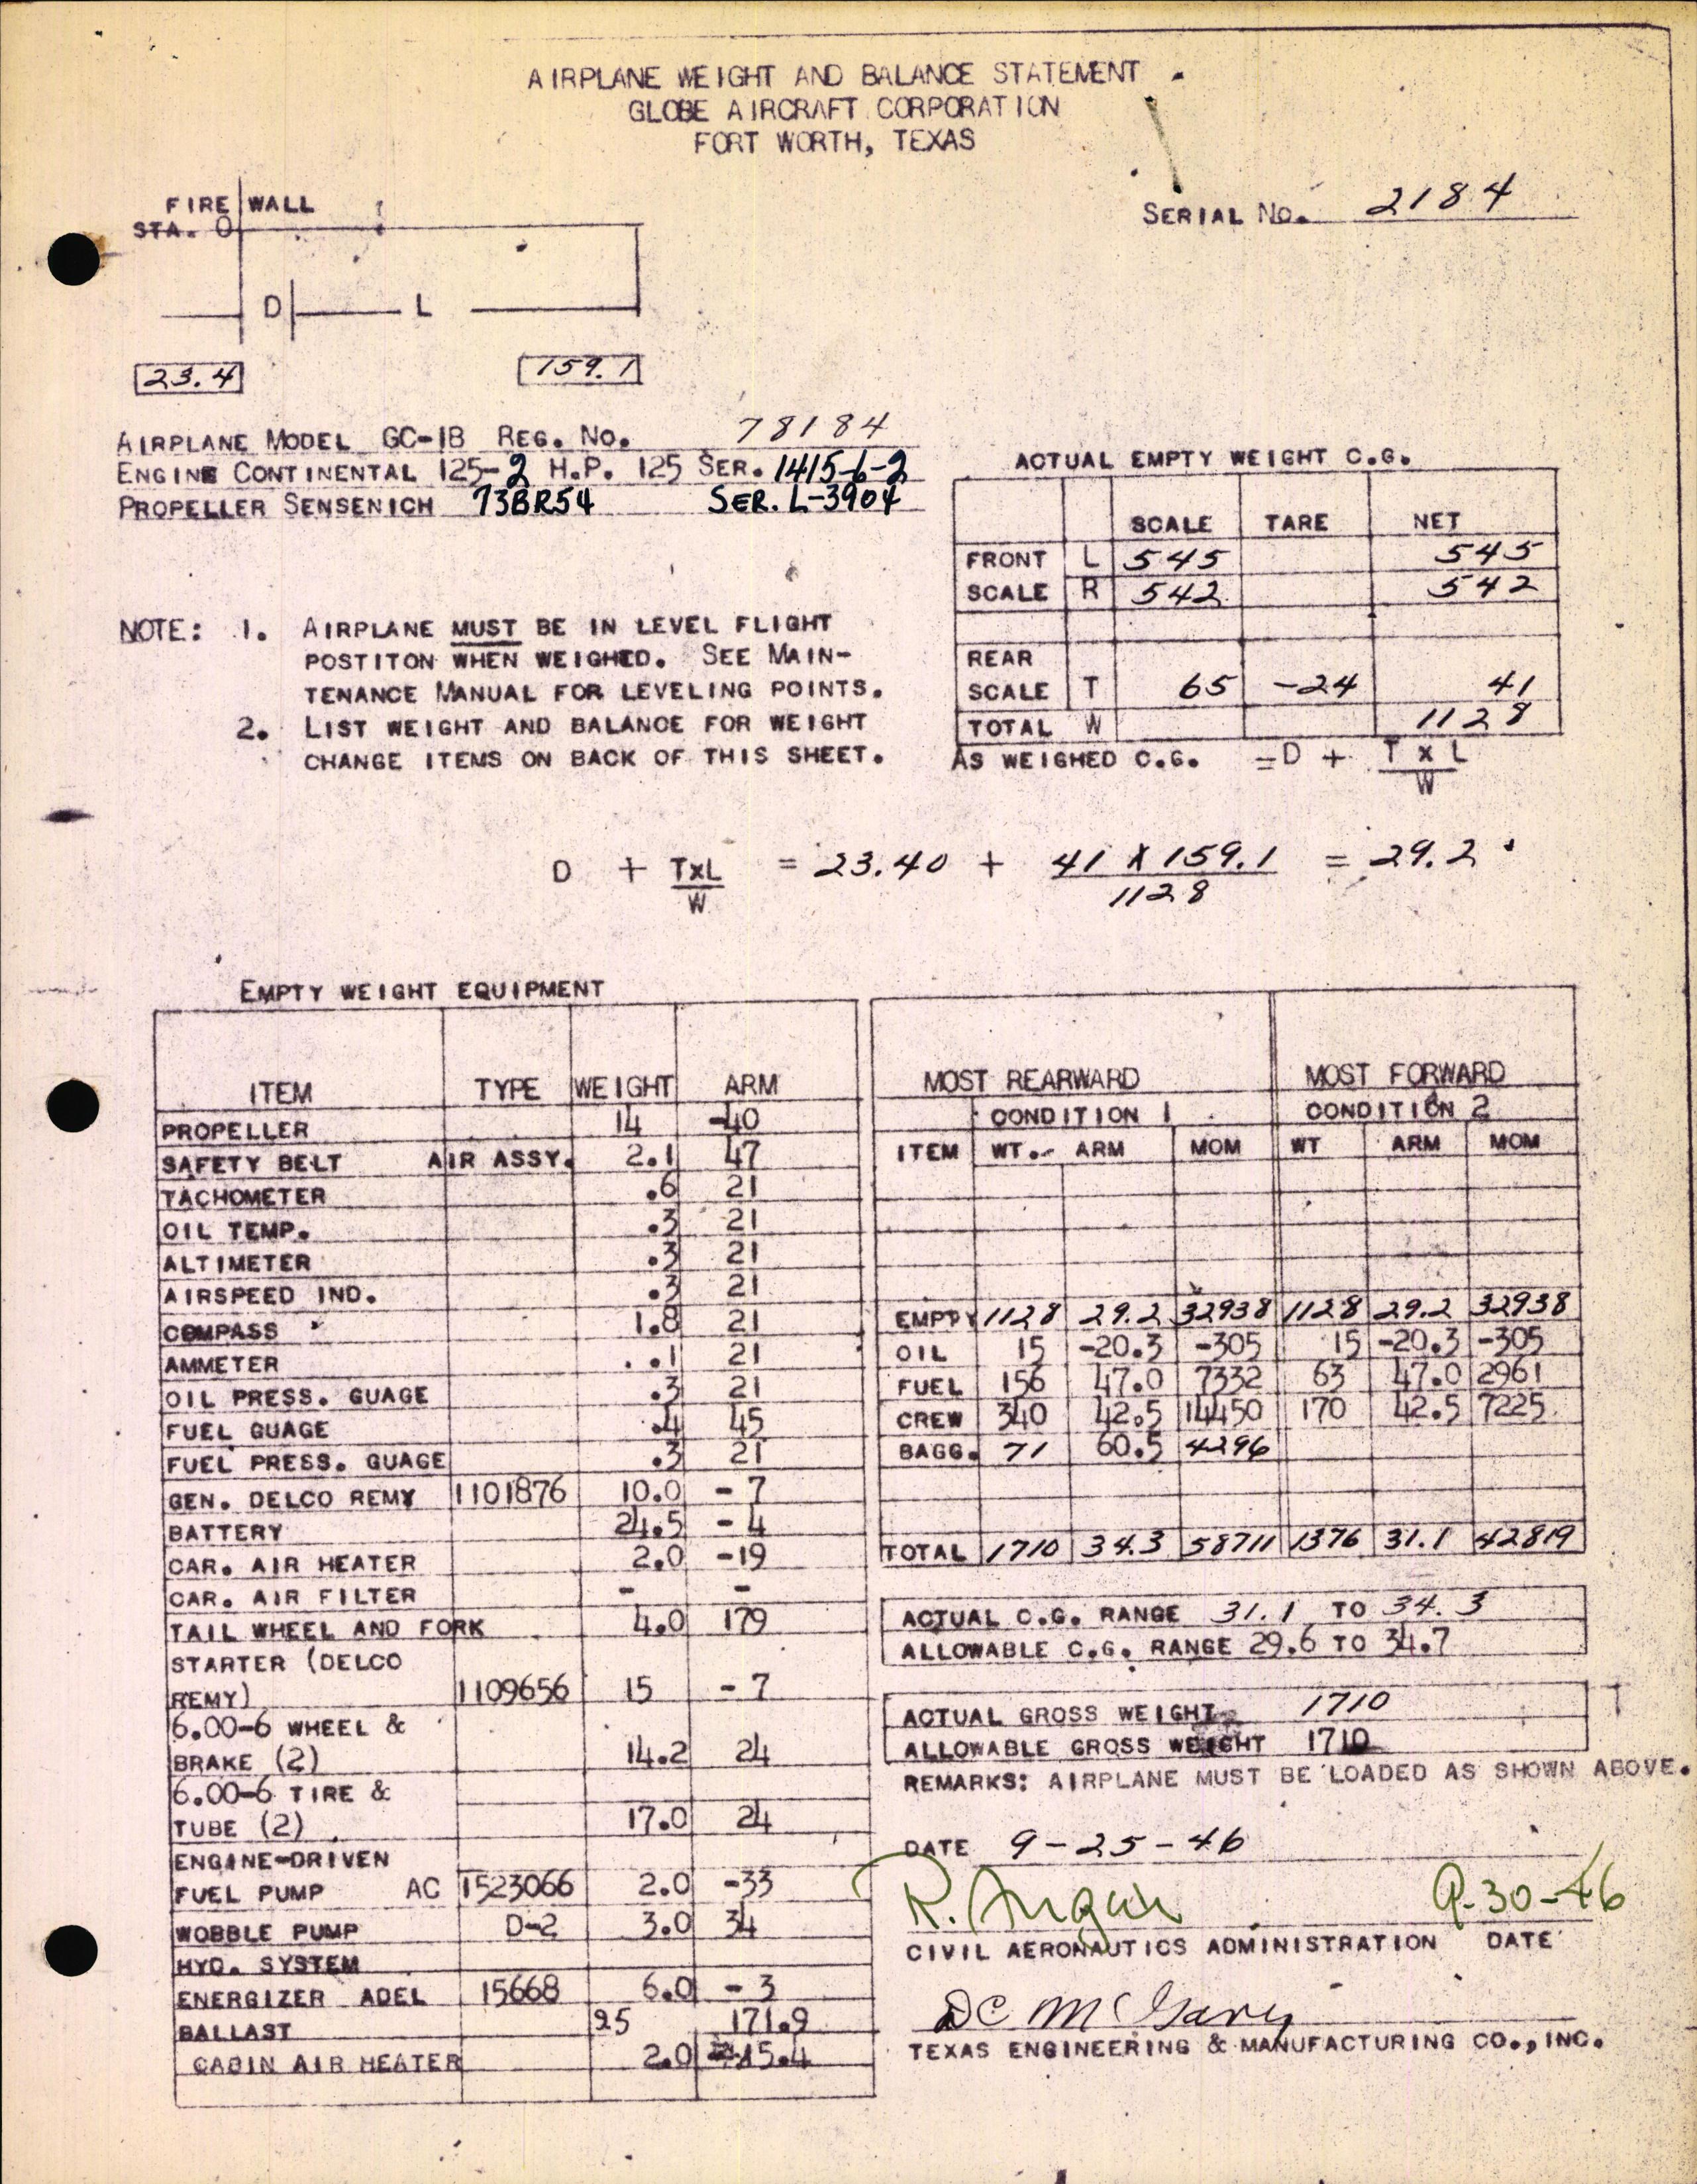 AIRPLANE WEIGHT AND BALANCE STATEMENT
GLOBE AIRCRAFT CORPORATION
FORT WORTH, TEXAS
FIRE WALL
STA. 0
SERIAL NO. 2184
D L
23.4 159.1
AIRPLANE MODEL GC-1B REG. NO. 78184
ENGINE CONTINENTAL 125-2 H.P. 125 SER. 1415-6-2
PROPELLER SENSENICH 73BR54 SER. L-3904
NOTE: 1. AIRPLANE MUST BE IN LEVEL FLIGHT
POSTITON WHEN WEIGHED. SEE MAIN-
TENANCE MANUAL FOR LEVELING POINTS.
2. LIST WEIGHT AND BALANCE FOR WEIGHT
CHANGE ITEMS ON BACK OF THIS SHEET.
ACTUAL EMPTY WEIGHT C.G.
SCALE TARE NET
FRONT L 545 545
SCALE R 542 542
REAR
SCALE T 65 -24 41
TOTAL W 1128
AS WEIGHED C.G. = D + T X L
W
D + TXL = 23.40 + 41 X 159.1 = 29.2
W 1128
EMPTY WEIGHT EQUIPMENT
ITEM TYPE WEIGHT ARM
PROPELLER 14 -40
SAFETY BELT AIR ASSY. 2.1 47
TACHOMETER .6 21
OIL TEMP. .3 21
ALTIMETER .3 21
AIRSPEED IND. .3 21
COMPASS 1.8 21
AMMETER .1 21
OIL PRESS. GUAGE .3 21
FUEL GUAGE .4 45
FUEL PRESS. GUAGE .3 21
GEN. DELCO REMY 1101876 10.0 - 7
BATTERY 24.5 - 4
CAR. AIR HEATER 2.0 -19
CAR. AIR FILTER - -
TAIL WHEEL AND FORK 4.0 179
STARTER (DELCO
REMY) 1109656 15 - 7
6.00-6 WHEEL &
BRAKE (2) 14.2 24
6.00-6 TIRE &
TUBE (2) 17.0 24
ENGINE-DRIVEN
FUEL PUMP AC 1523066 2.0 -33
WOBBLE PUMP D-2 3.0 34
HYD. SYSTEM
ENERGIZER ADEL 15668 6.0 - 3
BALLAST 25 171.9
CABIN AIR HEATER 2.0 15.4
MOST REARWARD MOST FORWARD
CONDITION 1 CONDITION 2
ITEM WT. ARM MOM WT ARM MOM
EMPTY 1128 29.2 32938 1128 29.2 32938
OIL 15 -20.3 -305 15 -20.3 -305
FUEL 156 47.0 7332 63 47.0 2961
CREW 340 42.5 14450 170 42.5 7225
BAGG. 71 60.5 4296
TOTAL 1710 34.3 58711 1376 31.1 42819
ACTUAL C.G. RANGE 31.1 TO 34.3
ALLOWABLE C.G. RANGE 29.6 TO 34.7
ACTUAL GROSS WEIGHT 1710
ALLOWABLE GROSS WEIGHT 1710
REMARKS: AIRPLANE MUST BE LOADED AS SHOWN ABOVE.
DATE 9-25-46
R. 9-30-46
CIVIL AERONAUTICS ADMINISTRATION DATE
DC McGary
TEXAS ENGINEERING & MANUFACTURING CO., INC.